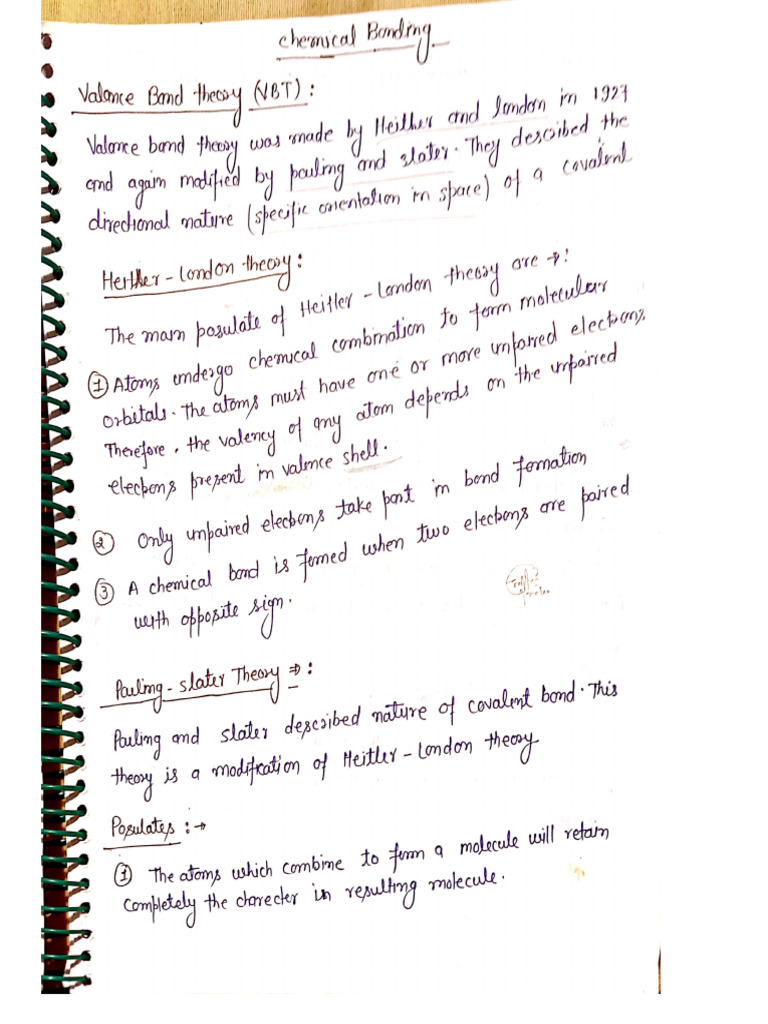 Chemical Bonding
Valance Bond theory (VBT) :
Valance bond theory was made by Heither and london in 1927
and again modified by pauling and slater. They described the
directional nature (specific orientation in space) of a covalent
Heither - London theory :
The main posulate of Heitler - London theory are → :
① Atoms undergo chemical combination to form molecular
orbitals. The atoms must have one or more unpaired electrons,
Therefore, the valency of any atom depends on the unpaired
electrons present in valence shell.
② Only unpaired electrons take part in bond formation
③ A chemical bond is formed when two electrons are paired
with opposite sign.
Pauling - slater Theory ⇒ :
Pauling and slater described nature of covalent bond. This
theory is a modification of Heitler - London theory
Posulates : →
① The atoms which combine to form a molecule will retain
completely the charecter in resulting molecule.